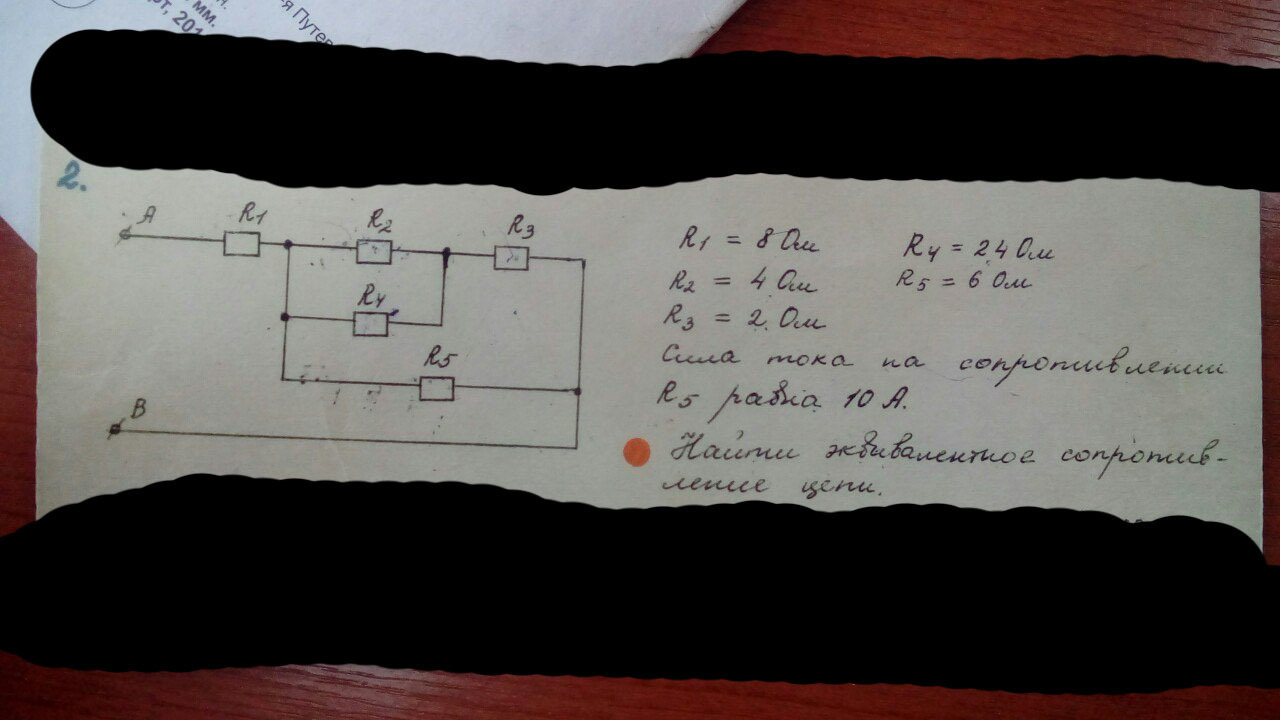 мм.
2.
A
R1
R2
R3
R4
R5
B
R1 = 8 Ом
R4 = 2,4 Ом
R2 = 4 Ом
R5 = 6 Ом
R3 = 2 Ом
Сила тока на сопротивлении
R5 равна 10 А.
Найти эквивалентное сопротив-
ление цепи.